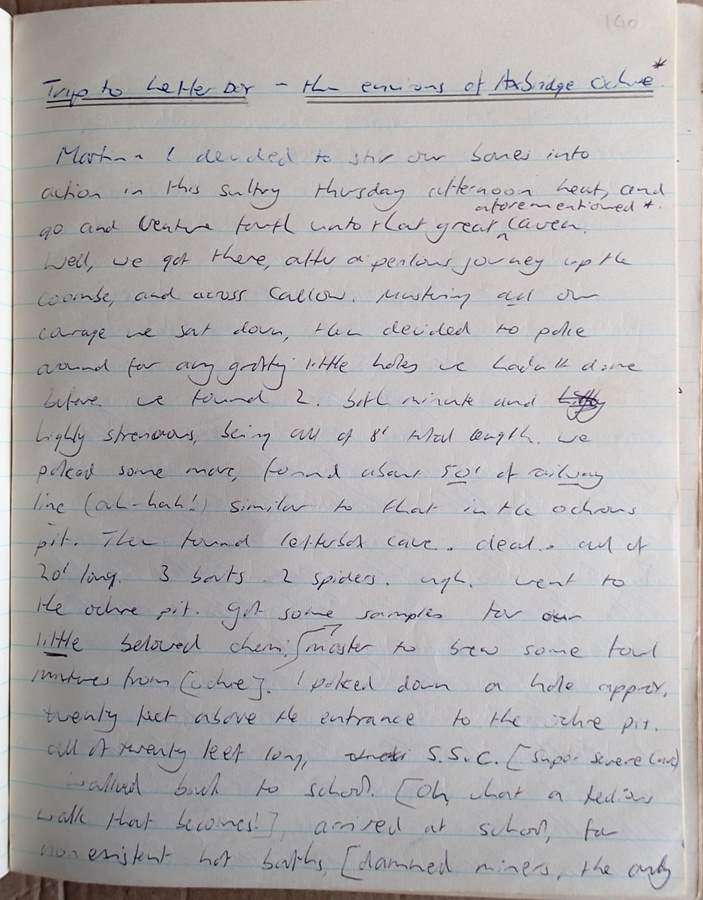 160
Trip to Letter Box - the environs of Axbridge Ochre *
Martin + I decided to stir our bones into
action in this sultry thursday afternoon heat, and
aforementioned *
go and venture fourth unto that great ^ cavern.
Well, we got there, after a perilous journey up the
coombe, and across Callow. Mustering all our
courage we sat down, then decided to poke
around for any grotty little holes we hadn't done
before. We found 2. both minute and
highly strenuous, being all of 8' total length. We
poked some more, found about 50' of railway
line (ah-hah!) similar to that in the ochrous
pit. Then found letterbox cave. dead. all of
20' long. 3 bats. 2 spiders. ugh. went to
the ochre pit. got some samples for our
little beloved chemi master to brew some foul
mixtures from [ochre]. I poked down a hole approx.
twenty feet above the entrance to the ochre pit.
all of twenty feet long, S.S.C. [super severe cave]
walked back to school. [Oh, what a tedious
walk that becomes!], arrived at school, for
non existent hot baths, [damned miners, the only